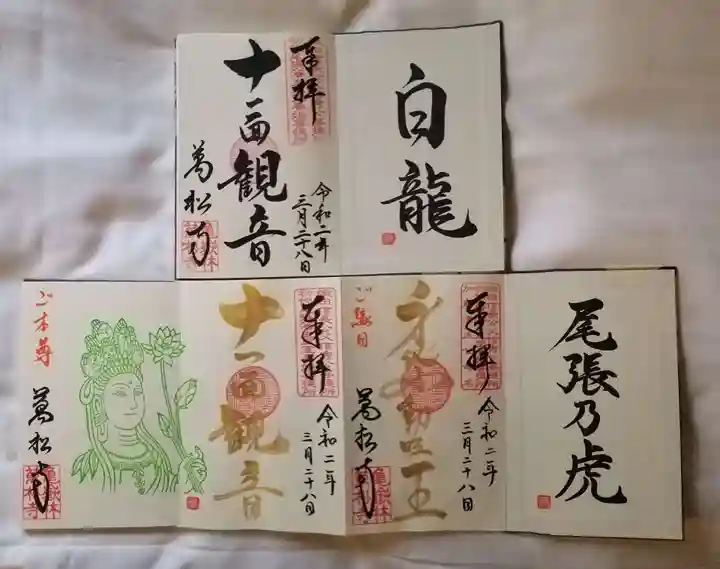 白龍
奉拝
令和二年
三月二十八日
十一面観音
萬松寺
尾張乃虎
奉拝
令和二年
三月二十八日
ご縁日
不動明王
萬松寺
奉拝
令和二年
三月二十八日
十一面観音
ご本尊
萬松寺